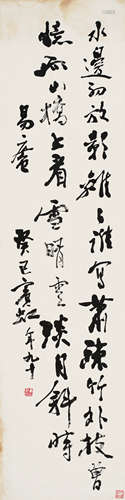 水邊初放影離離誰寫蕭疎竹外枝曾
憶西小橋上看雪晴雲淡月斜時
易庵
癸巳賓虹年九十